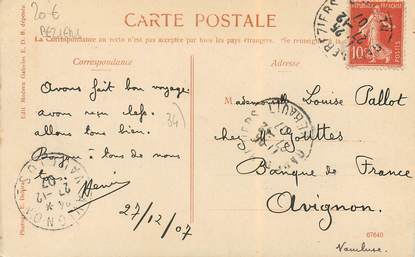 20 €
BÉZIERS
CARTE POSTALE
La Correspondance au recto n'est pas acceptée par tous les pays étrangers. (Se renseigner
Correspondance
Adresse
Avons fait bon voyage
avons reçu
allons tous bien.
à tous de nous
tous. Henri
27/12/07
34
Mademoiselle Louise Pallot
chez M Gouttes
Banque de France
Avignon.
Vaucluse
67640
Edit. Modern Galeries E. D. B. déposée
BEZIERS
HERAULT
AVIGNON
VAUCLUSE
27 -12
07
10